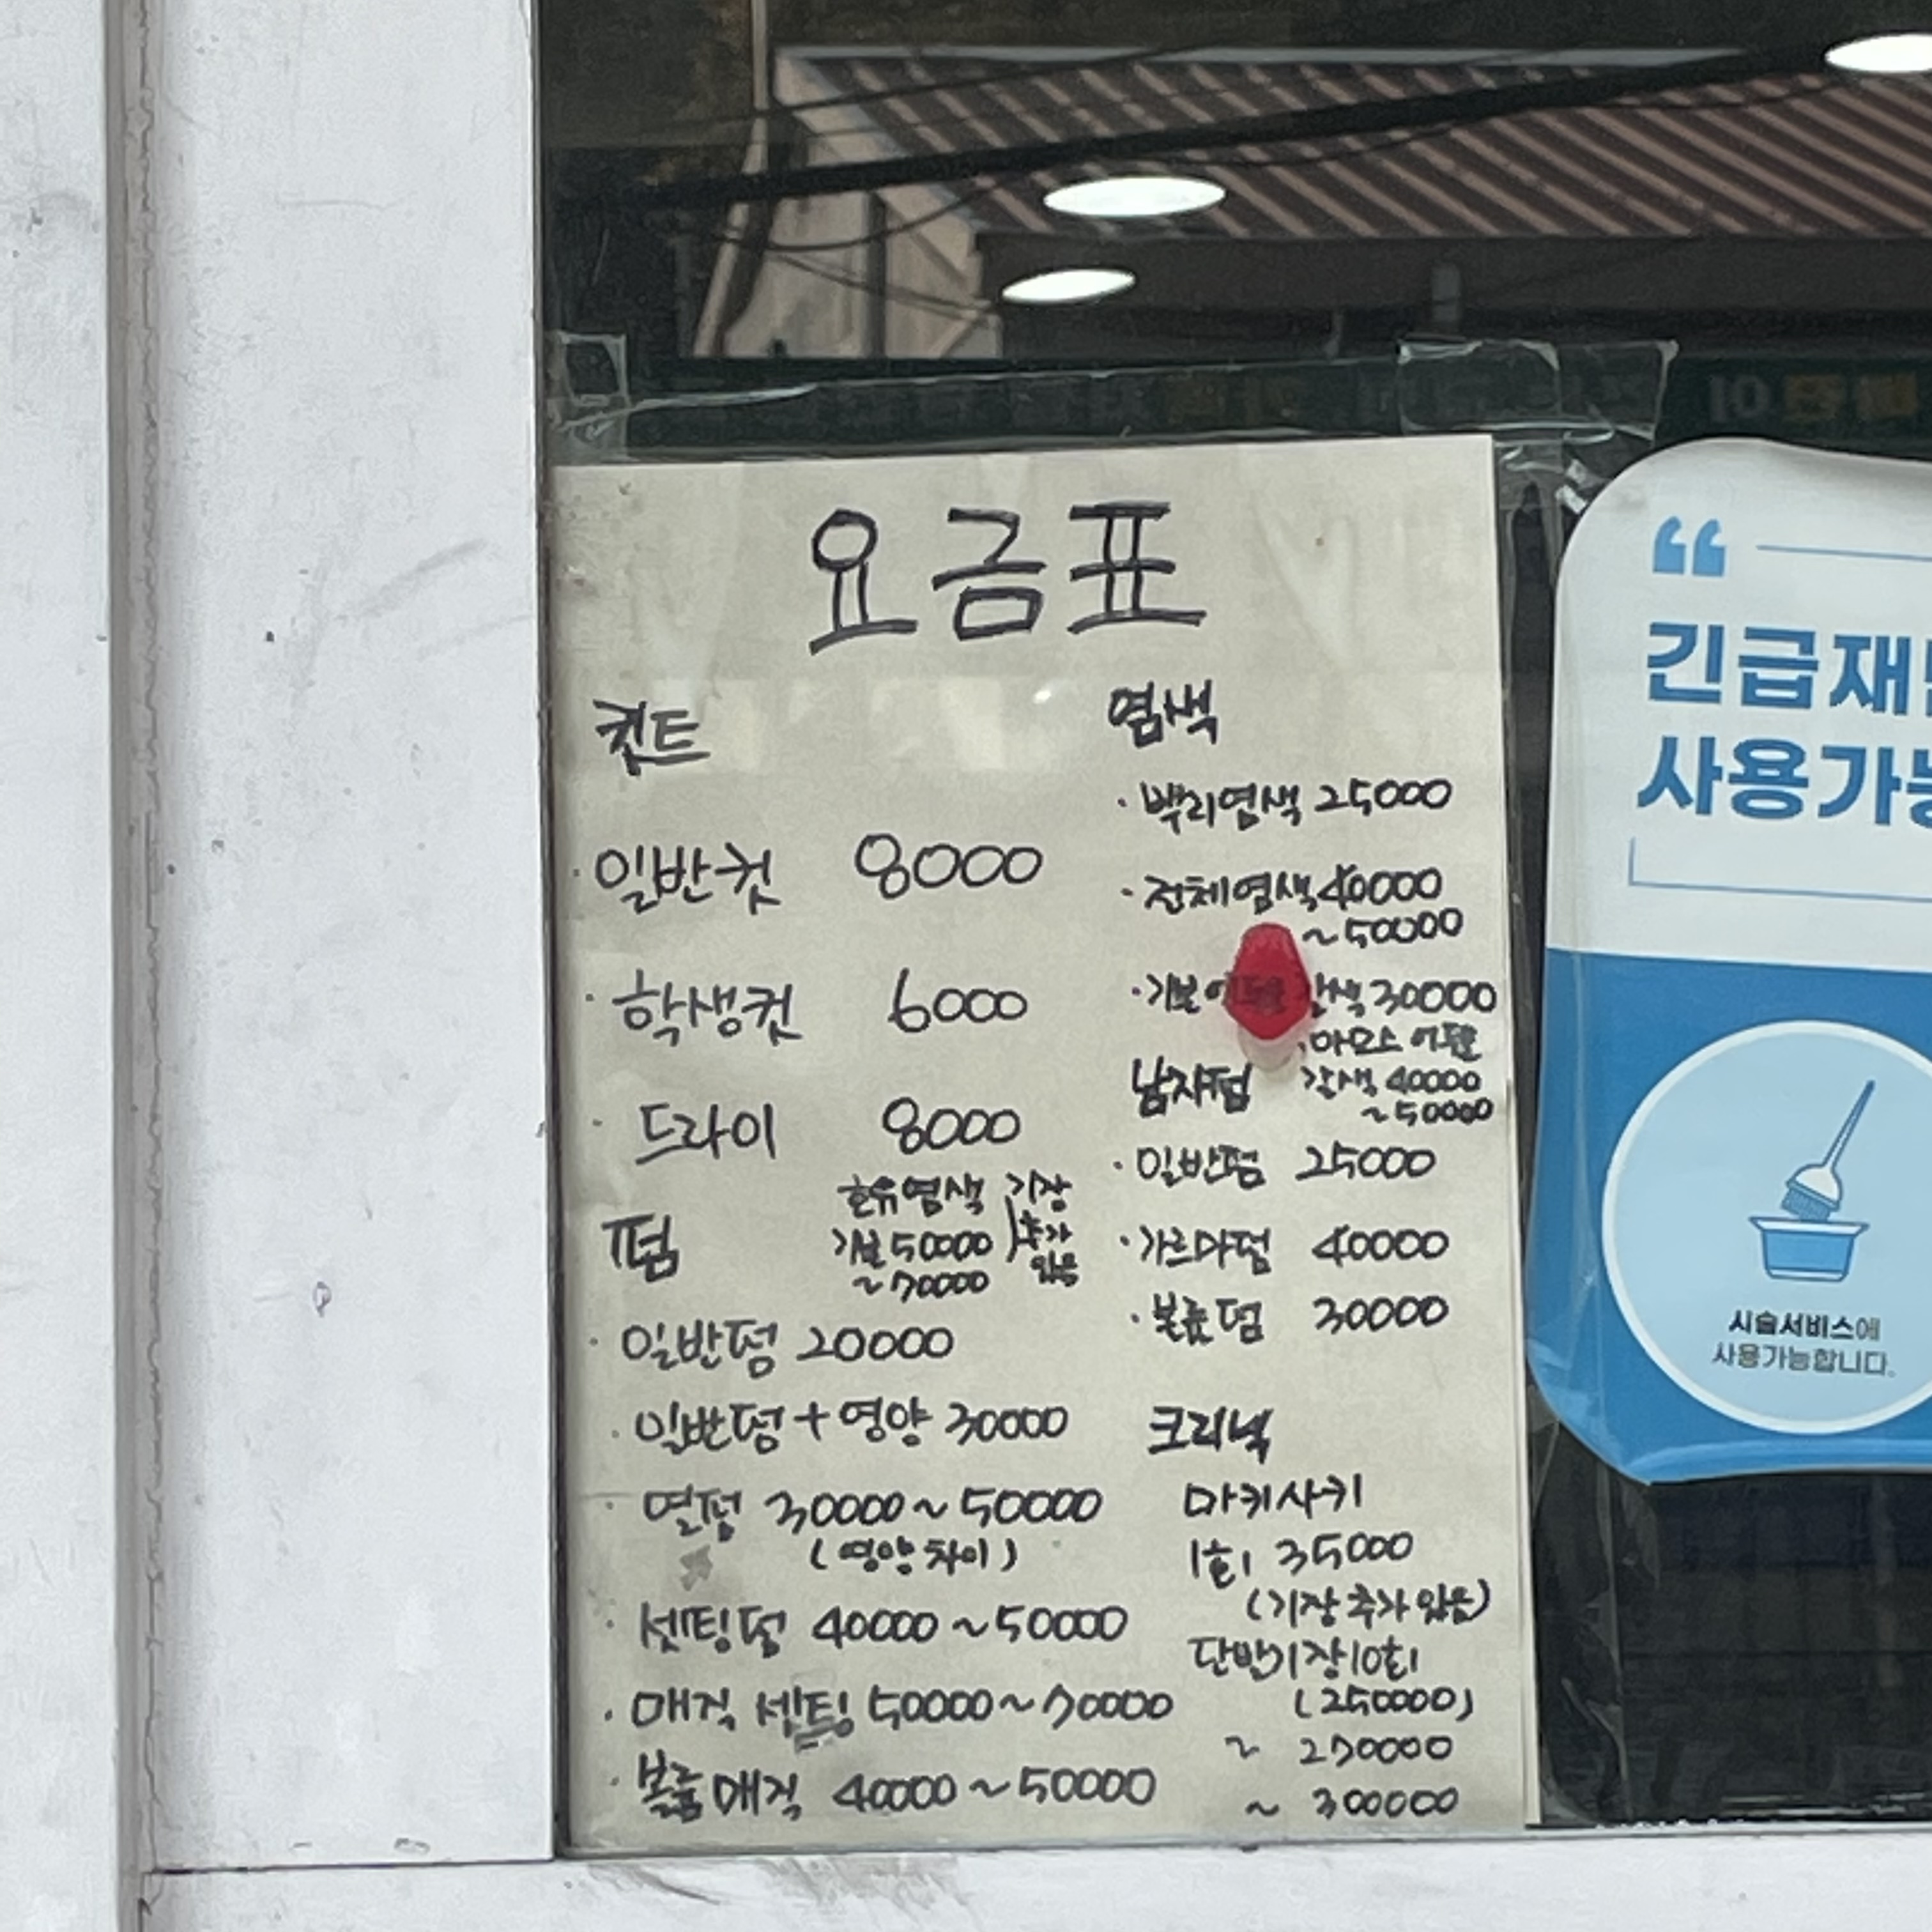 요금표
컷트
· 일반컷 8000
· 학생컷 6000
· 드라이 8000
펌
혼유염색
기본 50000
~70000
기장
추가
있음
· 일반펌 20000
· 일반펌 + 영양 30000
· 열펌 30000~50000
(영양차이)
· 셋팅펌 40000~50000
· 매직 셋팅 50000~70000
· 볼륨매직 40000~50000
염색
· 뿌리염색 25000
· 전체염색 40000
~50000
· 기본 색 30000
갈색 40000
~50000
남자펌
· 일반펌 25000
· 가르마펌 40000
· 볼륨펌 30000
크리닉
마키사키
1회 35000
(기장 추가 있음)
단발기장 10회
(250000)
~ 270000
~ 300000
“
긴급재
사용가
시술서비스에
사용가능합니다.